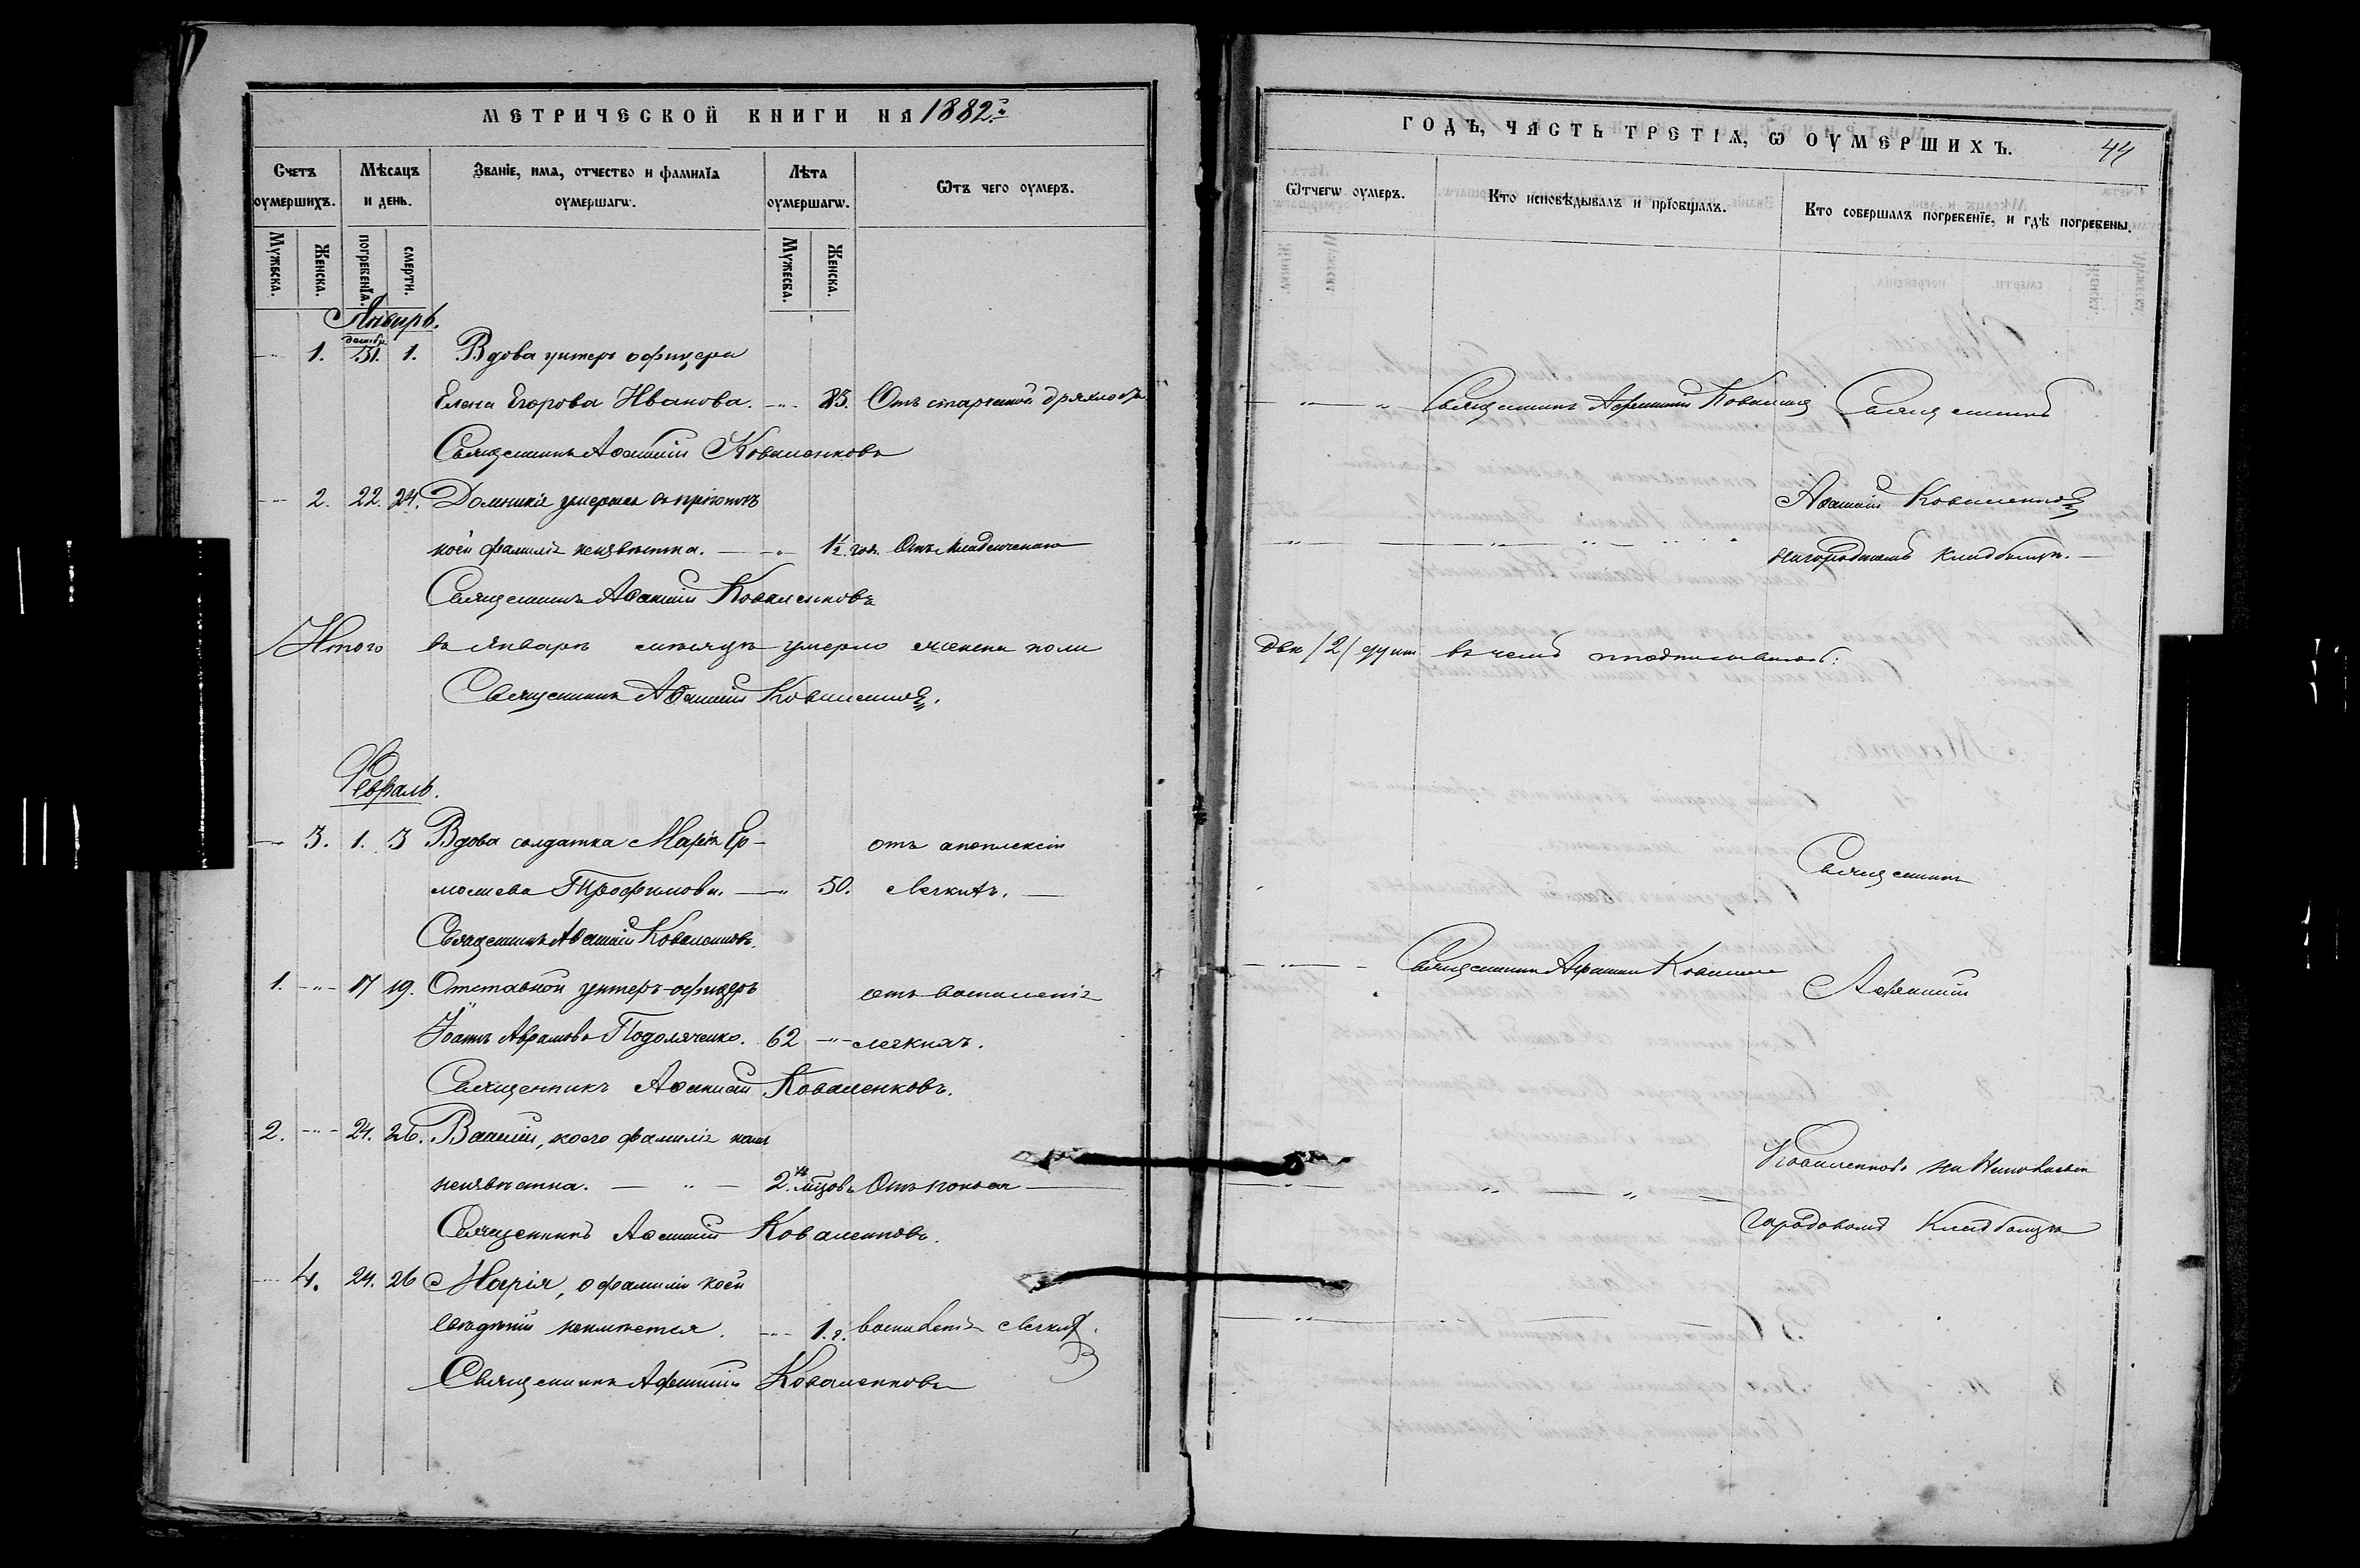 МЕТРИЧЕСКОЙ КНИГИ НА 1882й
Счетъ оумершихъ.
Мѣсяцъ и день.
Званїе, имя, отчество и фамилїя оумершагѡ.
Лѣта оумершагѡ.
Ѿъ чего оумеръ.
Мужеска.
Женска.
погребенїя.
смерти.
Мужеска.
Женска.
Январь.
1. декабр. 31. 1. Вдова унтеръ офицера
Елена Егорова Иванова. 85. Отъ старческой дряхлости
Священникъ Аѳанасій Коваленковъ
2. 22. 24. Домникія умершая въ пріютѣ
коей фамилія неизвѣстна. 1½ года Отъ младенческаго
Священникъ Аѳанасій Коваленковъ
Итого въ Январѣ мѣсяцѣ умерло женска пола
Священникъ Аѳанасій Коваленковъ.
Февраль.
3. 1. 3 Вдова солдатка Марія Ер-
молаева Трофимова. 50. отъ апоплексіи легкихъ.
Священникъ Аѳанасій Коваленковъ.
1. 17 19. Отставной унтеръ-офицеръ отъ воспаленія
Іоаннъ Аврамовъ Подоляченко. 62 легкихъ.
Священникъ Аѳанасій Коваленковъ.
2. 24. 26. Василій, коего фамилія намъ
неизвѣстна. 2 мѣсяцовъ Отъ
Священникъ Аѳанасій Коваленковъ.
4. 24. 26 Марія, о фамиліи коей
свѣдѣній неимѣется. 1. г. воспаленія легких
Священникъ Афанасій Коваленковъ
ГОДЪ, ЧАСТЬ ТРЕТІЯ, Ѡ ОУМЕРШИХЪ.
44
Ѿчегѡ оумеръ.
Кто исповѣдывалъ и прїобщалъ.
Кто совершалъ погребенїе, и гдѣ погребены.
Священникъ Афанасій Коваленко Священникъ
Аѳанасій Коваленковъ
на городскомъ кладбищѣ.
двѣ /2/ души въ чемъ и подписываюсь:
Священникъ
Священникъ Афанасій Коваленко
Афанасій
Коваленковъ на
городовомъ Кладбищѣ